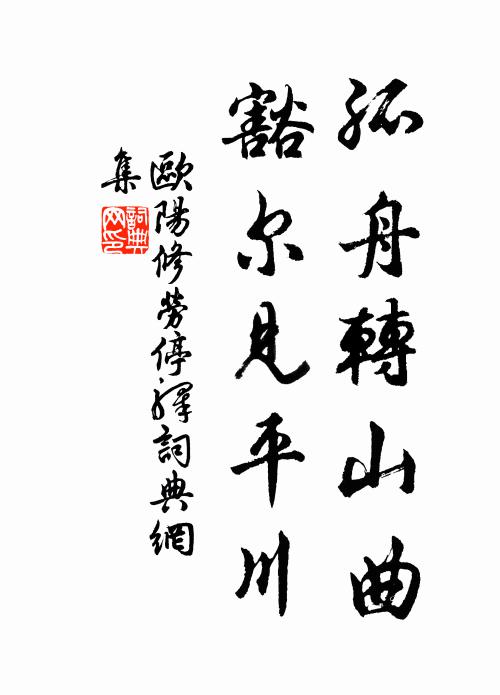 孤舟轉山曲
豁尔見平川
歐陽修勞停驛詞典網
集
詞典
网印